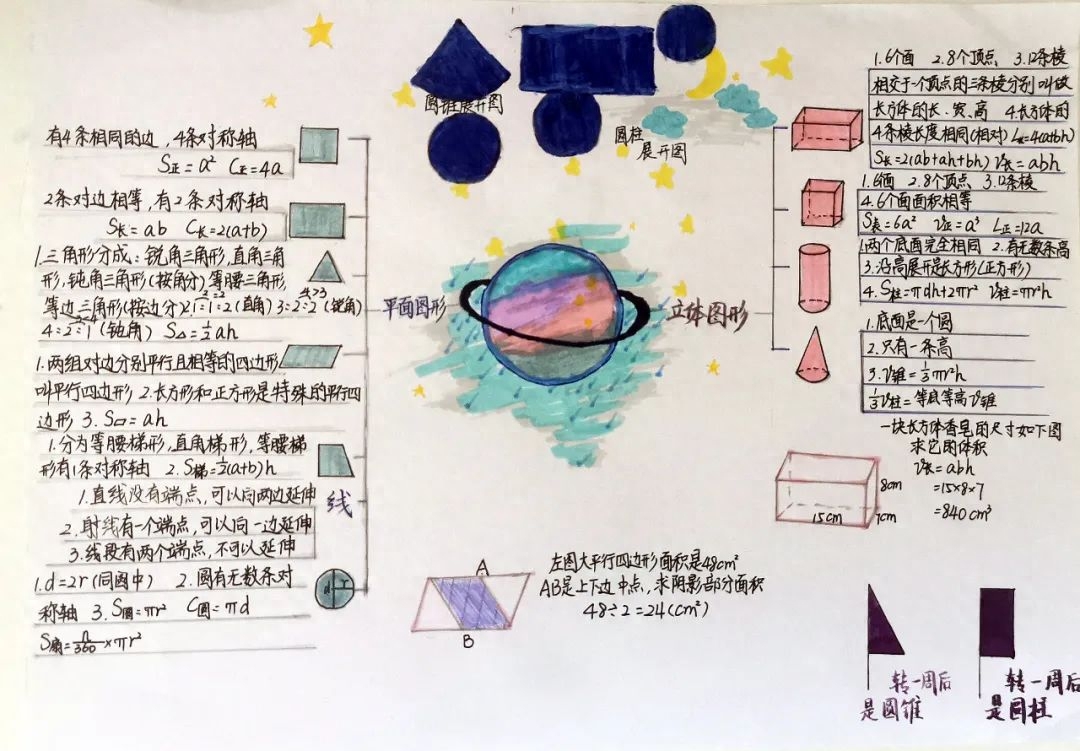 圆锥展开图
圆柱
展开图
有4条相同的边，4条对称轴
S正=a² C正=4a
2条对边相等，有2条对称轴
S长=ab C长=2(a+b)
1.三角形分成：锐角三角形，直角三角
形，钝角三角形(按角分)等腰三角形
等边三角形(按边分)
1:1:2(直角) 3:2:2(锐角)
4:2:1(钝角) S△=½ah
1.两组对边分别平行且相等的四边形
叫平行四边形 2.长方形和正方形是特殊的平行四
边形 3.S▱=ah
1.分为等腰梯形，直角梯形，等腰梯
形有1条对称轴 2.S梯=½(a+b)h
1.直线没有端点，可以向两边延伸
2.射线有一个端点，可以向一边延伸
3.线段有两个端点，不可以延伸
线
1.d=2r(同圆中) 2.圆有无数条对
称轴 3.S圆=πr² C圆=πd
S扇=n/360×πr²
d r
平面图形
立体图形
1.6个面 2.8个顶点 3.12条棱
相交于一个顶点的三条棱分别叫做
长方体的长、宽、高 4.长方体的
4条棱长度相同(相对) L长=4(a+b+h)
S长=2(ab+ah+bh) V长=abh
1.6面 2.8个顶点 3.12条棱
4.6个面面积相等
S表=6a² V正=a³ L正=12a
1.两个底面完全相同 2.有无数条高
3.沿高展开是长方形(正方形)
4.S柱=πdh+2πr² V柱=πr²h
1.底面是一个圆
2.只有一条高
3.V锥=⅓πr²h
⅓V柱=等底等高V锥
一块长方体香皂的尺寸如下图
求它的体积
V长=abh
=15×8×7
=840cm³
8cm
15cm
7cm
A
B
左图大平行四边形面积是48cm²
AB是上下边中点，求阴影部分面积
48÷2=24(cm²)
转一周后
是圆锥
转一周后
是圆柱